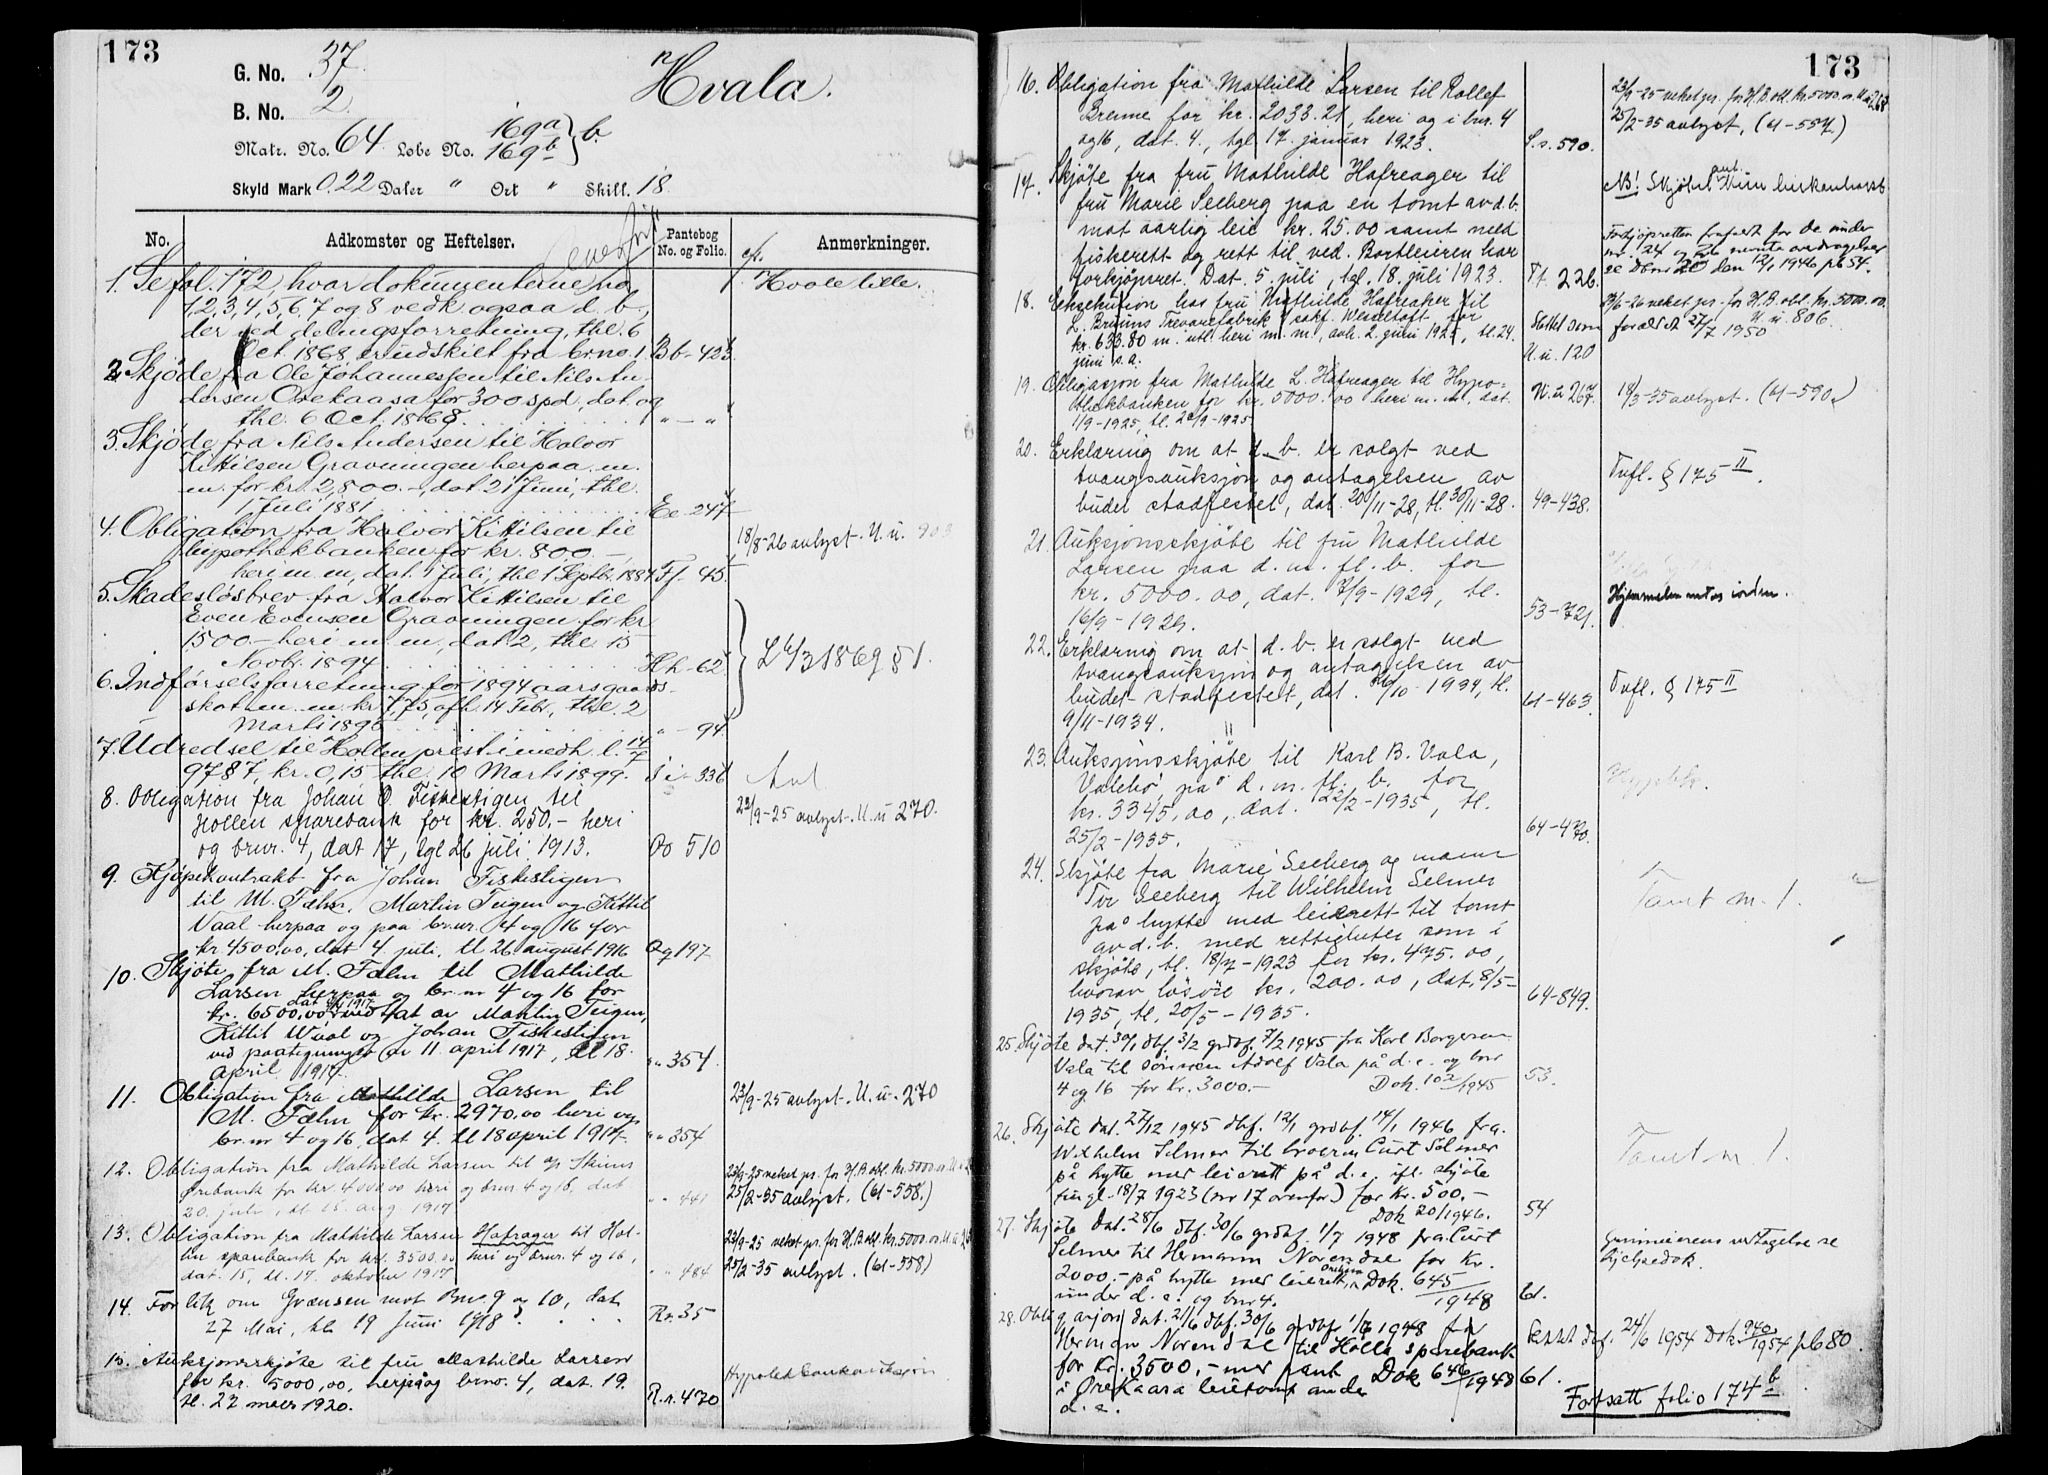 173
G. No. 37.
B. No. 2.
Hvala.
Matr. No. 64. Løbe No. 169a 169b } b.
Skyld Mark 0.22 Daler " Ort " Skill. 18.
No. Adkomster og Heftelser. Pantebog No. og Folio. Anmerkninger.
1. Se fol. 172, hvor dokumenterne no Hvale lille.
1, 2, 3, 4, 5, 6, 7 og 8 vedk. ogsaa d. b.,
der ved delingsforretning, thl. 6
Oct. 1868, er udskilt fra br.no. 1. Bb-423
2. Skjøde fra Ole Johannessen til Nils An-
dersen Orekaasa for 300 spd, dat. og
thl. 6 Oct. 1868. " - "
3. Skjøde fra Nils Andersen til Halvor
Kittilsen Gravningen herpaa m.
m. for kr. 2,800.-, dat. 21 Juni, thl.
1 Juli 1881 Ee-247
4. Obligation fra Halvor Kittilsen til 18/8-26 avlyst. U. u.
hypothekbanken for kr. 800.-,
heri m. m, dat. 1 Juli, thl 1 Septbr. 1884 Ff-45.
5. Skadesløsbrev fra Halvor Kittilsen til
Even Evensen Gravningen for kr
1500.- heri m. m, dat. 2, thl. 15
Novbr. 1894 Hh-62.
6. Indførselsforretning for 1894 aarsgaards-
skat m. m. kr 7,75, afh. 14 Febr, thl. 2
Marts 1896 " - 94
7. Udredsel til Hollen prest. i medh. l. 14/7
9787, kr. 0,15 thl. 10 Marts 1899. Ii-336
8. Obligation fra Johan O. Fiskestigen til
Hollen sparebank for kr. 250.- heri 22/9-25 avlyst. U. u 270.
og brnr. 4, dat 17, tgl 26 juli 1913. Oo 510
9. Kjøpekontrakt fra Johan Fiskestigen
til M. Fæhn, Martin Teigen og Kittil
Vaal herpaa og paa br.nr. 4 og 16 for
kr 4500,00, dat 4 juli, tl 26 august 1916 Qq 197
10. Skjøte fra M. Fæhn til Mathilde
Larsen herpaa og br. nr 4 og 16 for
kr. 6500,00, vedtat av Martin Teigen,
Kittil Waal og Johan Fiskestigen
ved paategninger av 11. april 1917, tl 18.
april 1917. "" 354
11. Obligation fra Mathilde Larsen til 22/9-25 avlyst. U. u. 270
M. Fæhn for kr. 2970,00 heri og
br. nr 4 og 16, dat 4. tl 18 april 1917 "" 354
12. Obligation fra Mathilde Larsen til Skiens 23/9-25 veket pr. for H.B. obl. kr. 5000.00
sparebank for kr. 4000,00 heri og brnr. 4 og 16, dat 25/2-35 avlyst. (61-558.)
20. juli, tl 15. aug. 1917 "" 441
13. Obligation fra Mathilde Larsen Hafrager til Hol- 23/9-25 veket pr. for H.B. obl. kr. 5000.00
len sparebank for kr. 3500,00 heri og brnr. 4 og 16, 25/2-35 avlyst. (61-558)
dat. 15, tl. 17. oktober 1917 "" 484
14. Forlik om Grænsen mot Bno. 9 og 10, dat
27 Mai, tl. 19 Juni 1918. Rr. 35
15. Auksjonsskjøte til fru Mathilde Larsen Hypotekbankauksjon
for kr. 5000,00, herpaa og brno. 4, dat. 19.
tl. 27 mars 1920. R.r. 470
173
16. Obligation fra Mathilde Larsen til Rollef 23/9-25 veket pr. for H.B. obl. kr. 5000.00
Brenne for kr. 2033.21, heri og i bnr. 4 25/2-35 avlyst. (61-557.)
og 16, dat. 4., tgl 17. januar 1923. S.s. 590.
17. Skjøte fra fru Mathilde Hafreager til NB! Skjøtet
fru Marie Seeberg paa en tomt av d. b.
mot aarlig leie kr. 25.00 samt med Forkjøpsretten frafalt for de under
fiskerett og rett til ved. Bortleieren har nr. 24 og 26 nevnte overdragelser
forkjøpsret. Dat. 5. juli, tgl. 18. juli 1923. T.t. 226. se Dbnr 20 den 12/1 1946 fol 54.
18. Eksekution hos fru Mathilde Hafreager til 19/6-26 veket pr. for H.B. obl. kr. 5000.00. U. u. 806.
L. Bruuns Trevarefabrik v/sakf. Wesseltoft for Slettet som foreldet 27/7 1950
kr. 633.80 m. utl. heri m. m., avh. 2. juni 1925, tl. 24.
juni s. a. U. u. 120
19. Obligasjon fra Mathilde L. Hafreager til Hypo-
thekbanken for kr. 5000.00 heri m. m., dat. U. u 267. 18/3-35 avlyst. (61-590.)
1/9-1925, tl. 22/9-1925
20. Erklæring om at d. b. er solgt ved
tvangsauksjon og antagelsen av Tvfl. § 175 II.
budet stadfestet, dat. 20/11-28, tl. 30/11-28. 49-438.
21. Auksjonsskjøte til fru Mathilde
Larsen paa d. m. fl. b. for
kr. 5000.00, dat. 7/9-1929, tl. Hjemmelen
16/9-1929. 53-721.
22. Erklæring om at d. b. er solgt ved
tvangsauksjon og antagelsen av
budet stadfestet, dat. 16/10-1934, tl. 61-463. Tvfl. § 175 II
9/11-1934.
23. Auksjonsskjøte til Karl B. Vala,
Valebø, på d. m. fl. b. for Hypobk.
kr. 3345,00, dat. 22/2-1935, tl.
25/2-1935. 64-470.
24. Skjøte fra Marie Seeberg og mann
Tor Seeberg til Wilhelm Selmer
på hytte med leierett til tomt Tomt nr. 1.
av d. b. med rettigheter som i
skjøte, tl. 18/7-1923 for kr. 475.00,
hvorav løsøre kr. 200.00, dat. 8/5-
1935, tl. 20/5-1935. 64-849.
25. Skjøte dat. 30/1 dbf. 3/2 grdbf. 7/2 1945 fra Karl Borgersen
Vala til sønnen Adolf Vala på d. e. og bnr
4 og 16 for kr. 3000.- Dok. 102/1945 53.
26. Skjøte dat. 27/12 1945 dbf. 12/1 grdbf. 14/1 1946 fra
Wilhelm Selmer til broren Curt Selmer Tomt nr 1.
på hytte med leierett på d. e. ifl. skjøte
tingl. 18/7 1923 (nr 17 ovenfor) for kr. 500.-
Dok 20/1946. 54
27. Skjøte dat. 28/6 dbf. 30/6 grdbf. 1/7 1948 fra Curt
Selmer til Hermann Norendal for kr.
2000.- på hytte med leierett, Dok. 645/1948
under d. e. og bnr 4. 61.
28. Obligasjon dat. 21/6 dbf. 30/6 grdbf. 1/7 1948 fra
Herman Norendal til Holla sparebank Slettet dbf. 24/6 1954 Dok 940/1954 fol 80.
for kr. 3500,- med pant Dok 646/1948 61.
i Orekaasa leietomt under
d. e. Fortsatt folio 174 b